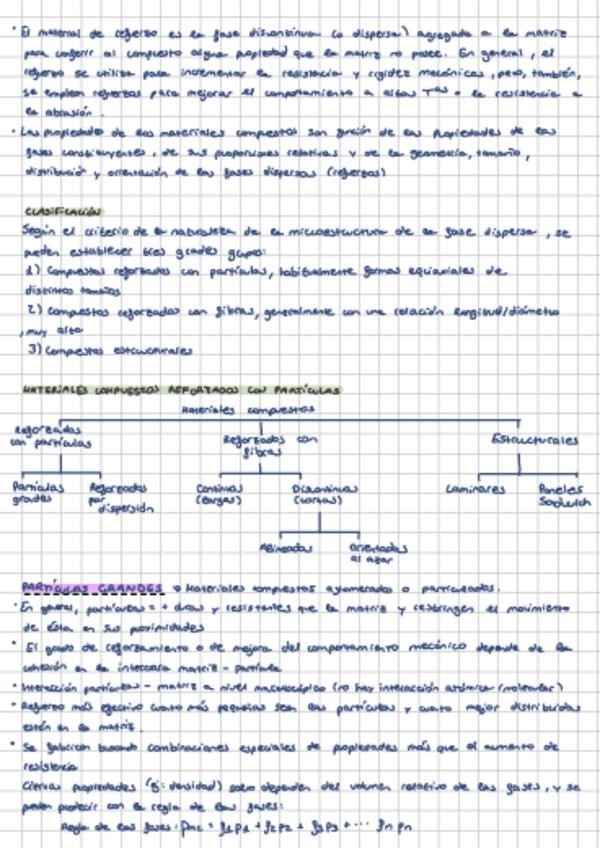 · El material de refuerzo es la fase discontinua (o dispersa) agregada a la matriz
para conferir al compuesto alguna propiedad que la matriz no posee. En general, el
refuerzo se utiliza para incrementar la resistencia y rigidez mecánicas, pero, también,
se emplean refuerzos para mejorar el comportamiento a altas Tªs o la resistencia a
la abrasión.
· Las propiedades de los materiales compuestos son función de las propiedades de las
fases constituyentes, de sus proporciones relativas y de la geometría, tamaño,
distribución y orientación de las fases dispersas (refuerzos)
CLASIFICACIÓN
Según el criterio de la naturaleza de la microestructura de la fase dispersa, se
pueden establecer tres grades grupos:
1) Compuestos reforzados con partículas, habitualmente formas equiaxiales de
distintos tamaños
2) Compuestos reforzados con fibras, generalmente con una relación longitud/diámetro
, muy alta
3) Compuestos estructurales
MATERIALES COMPUESTOS REFORZADOS CON PARTÍCULAS
Materiales compuestos
Reforzados con partículas
Reforzados con fibras
Estructurales
Partículas grandes
Reforzados por dispersión
Continuas (largas)
Discontinuas (cortas)
Laminares
Paneles Sandwich
Alineadas
Orientadas al azar
PARTÍCULAS GRANDES → Materiales compuestos aglomerados o particulados.
· En general, partículas = + duras y resistentes que la matriz y restringen el movimiento
de ésta en sus proximidades
· El grado de reforzamiento o de mejora del comportamiento mecánico depende de la
cohesión en la intercara matriz - partícula
· Interacción partículas - matriz a nivel macroscópico (no hay interacción atómica/molecular)
· Refuerzo más efectivo cuanto más pequeñas sean las partículas y cuanto mejor distribuidas
estén en la matriz.
· Se fabrican buscando combinaciones especiales de propiedades más que el aumento de
resistencia
Ciertas propiedades (Ej: densidad) solo dependen del volumen relativo de las fases, y se
pueden predecir con la regla de las fases:
Regla de las fases: ρmc = f1ρ1 + f2ρ2 + f3ρ3 + ... fnρn